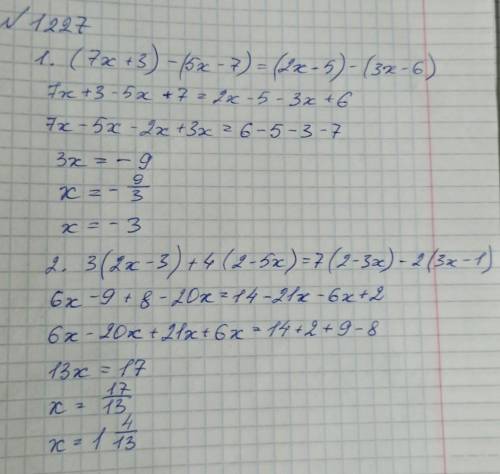 № 1227
1. (7x+3)-(5x-7)=(2x-5)-(3x-6)
7x+3-5x+7=2x-5-3x+6
7x-5x-2x+3x=6-5-3-7
3x=-9
x=-9/3
x=-3
2. 3(2x-3)+4(2-5x)=7(2-3x)-2(3x-1)
6x-9+8-20x=14-21x-6x+2
6x-20x+21x+6x=14+2+9-8
13x=17
x=17/13
x=1 4/13